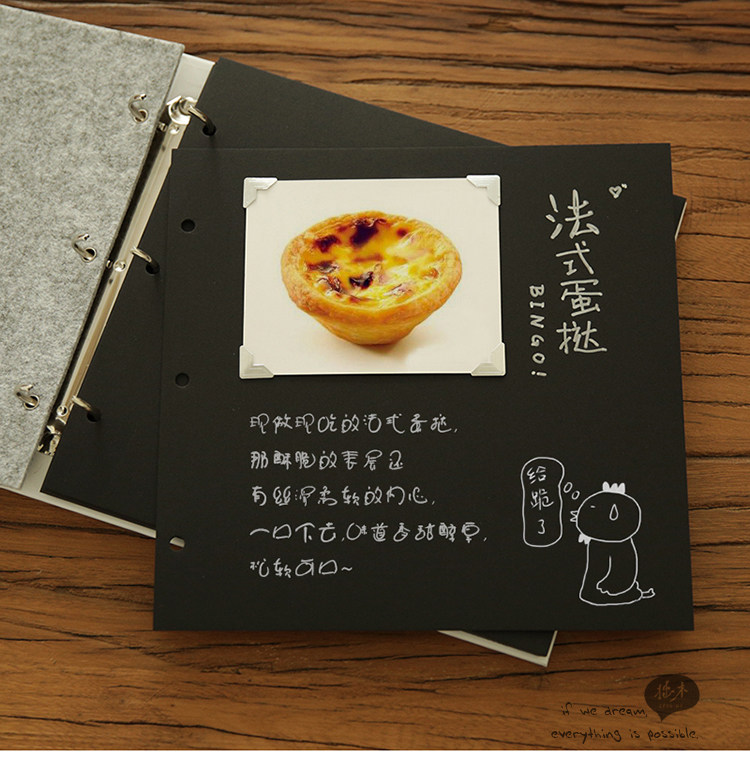 法式蛋挞
BINGO!
现做现吃的法式蛋挞,
那酥脆的表层还
有丝滑柔软的内心,
一口下去,味道香甜醇厚,
松软可口~
给跪了
if we dream,
everything is possible.